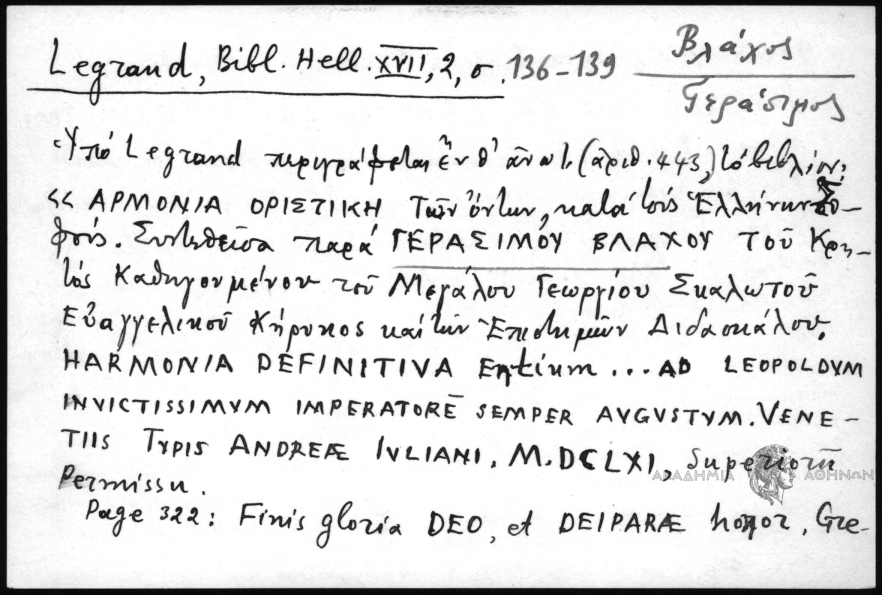 Legrand, Bibl. Hell. XVII, 2, σ. 136-139
Βλάχος
Γεράσιμος
Ὑπό Legrand περιγράφεται ἐν θ' ἀνωτ. (ἀριθ. 443,) τό βιβλίον:
<< ΑΡΜΟΝΙΑ ΟΡΙΣΤΙΚΗ Τῶν ὄντων, κατά τούς Ἑλλήνων σο-
φούς. Συντεθεῖσα παρά ΓΕΡΑΣΙΜΟΥ ΒΛΑΧΟΥ ΤΟῦ Κρη-
τός Καθηγουμένου τοῦ Μεγάλου Γεωργίου Σκαλωτοῦ
Εὐαγγελικοῦ Κήρυκος καί τῶν Ἐπιστημῶν Διδασκάλου.
HARMONIA DEFINITIVA Entium ... AD LEOPOLDVM
INVICTISSIMVM IMPERATORĒ SEMPER AVGVSTVM. VENE-
TIIS TYPIS ANDREÆ IVLIANI, M.DCLXI, Superiorū
Permissu.
Page 322: Finis gloria DEO, et DEIPARÆ honor, Gre-
ΑΚΑΔΗΜΙΑ ΑΘΗΝΩΝ